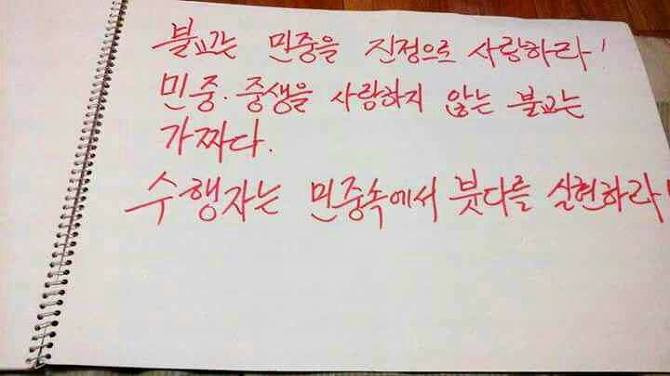 불교는 민중을 진정으로 사랑하라!
민중·중생을 사랑하지 않는 불교는
가짜다.
수행자는 민중속에서 붓다를 실현하라!